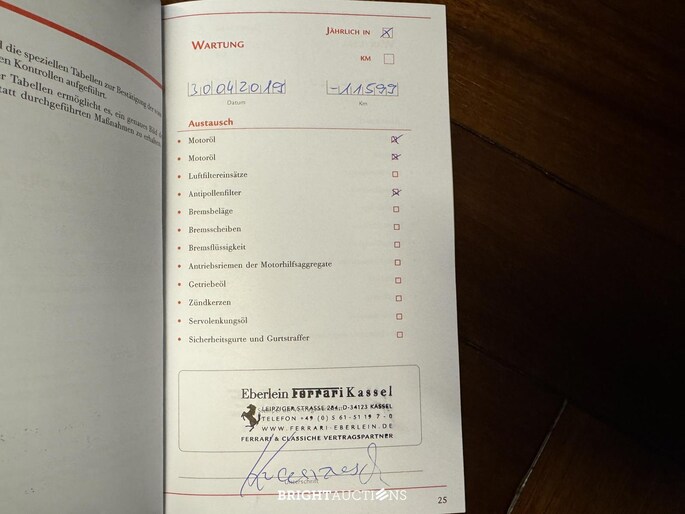 d die speziellen Tabellen zur Bestätigung der
en Kontrollen aufgeführt.
r Tabellen ermöglicht es, ein genaues Bild
tatt durchgeführten Maßnahmen zu erhalten.
JÄHRLICH IN
WARTUNG
KM
30042019
-11599
Datum
Km
Austausch
Motoröl
Motoröl
Luftfiltereinsätze
Antipollenfilter
Bremsbeläge
Bremsscheiben
Bremsflüssigkeit
Antriebsriemen der Motorhilfsaggregate
Getriebeöl
Zündkerzen
Servolenkungsöl
Sicherheitsgurte und Gurtstraffer
Eberlein Ferrari Kassel
LEIPZIGER STRASSE 284, D-34123 KASSEL
TELEFON +49 (0) 5 61-51 19 7-0
WWW.FERRARI-EBERLEIN.DE
FERRARI & CLASSICHE VERTRAGSPARTNER
Unterschrift
BRIGHTAUCTIONS
25